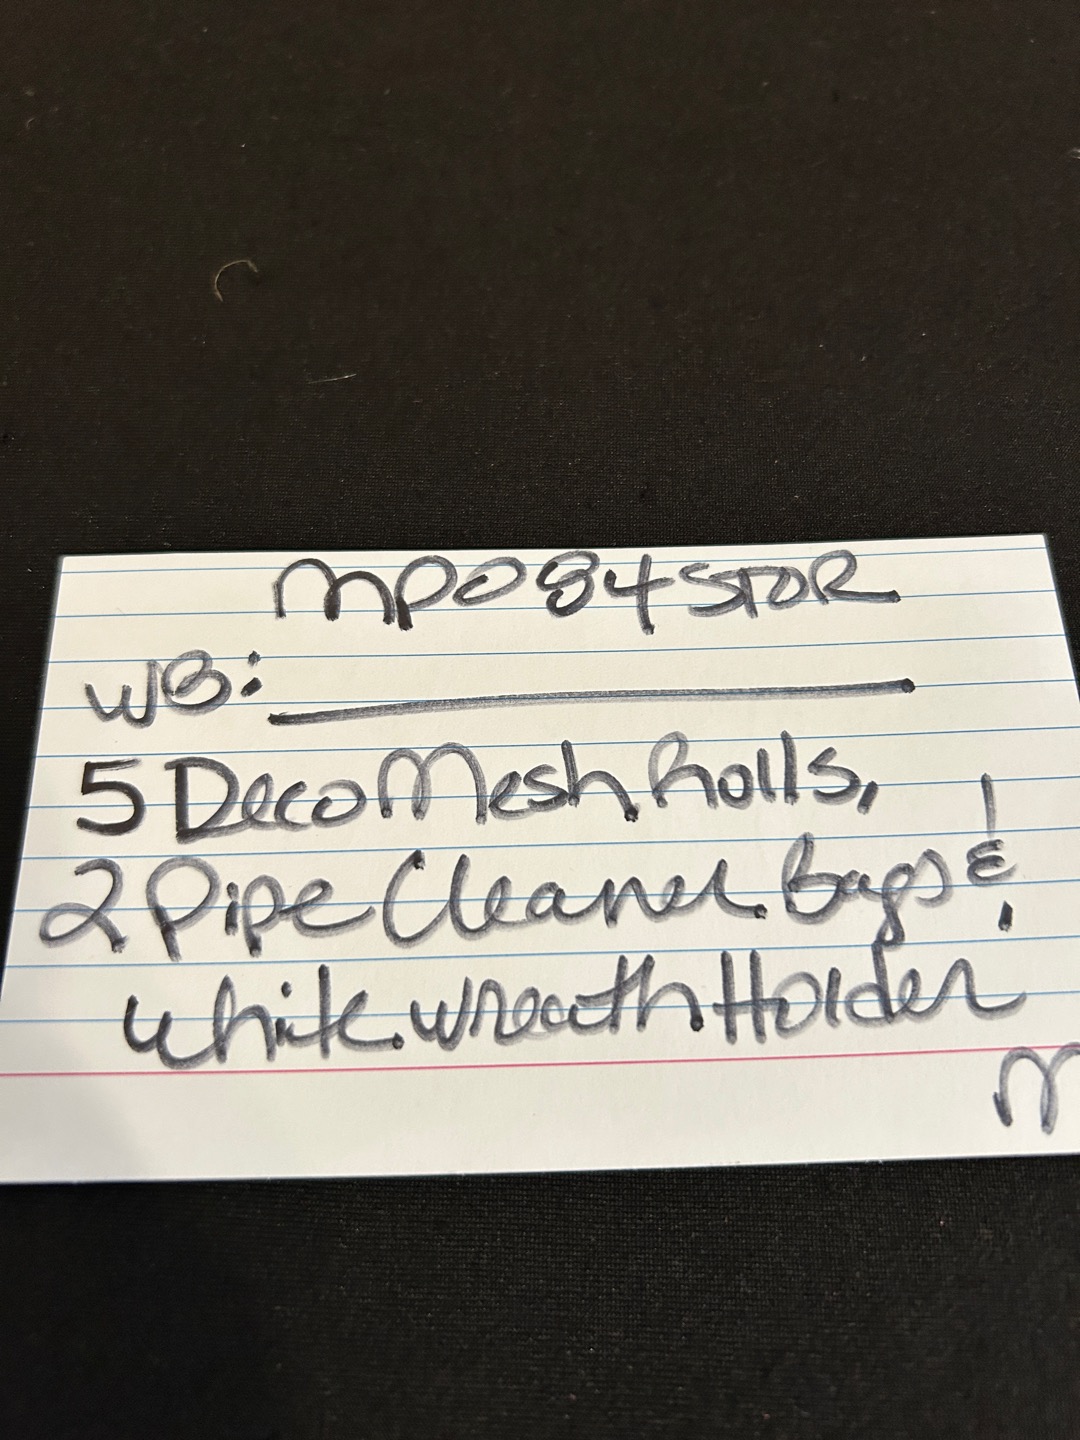 MP084STOR
WB:
5 Deco Mesh Rolls,
2 Pipe Cleaner Bags &
White Wreath Holder
M